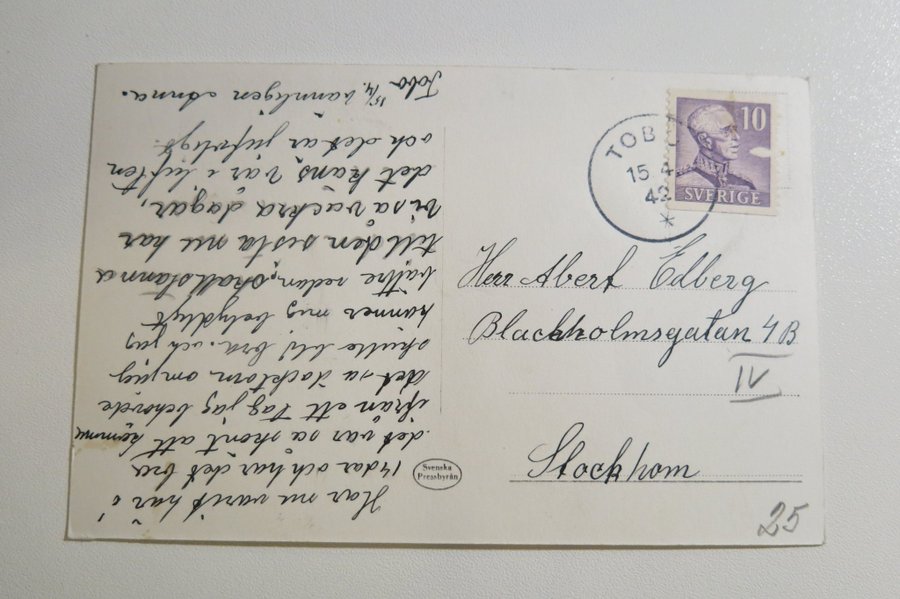 Har nu varit här i
14 dar och har det bra
det var så skönt att komma
ifrån ett tag jag behövde
det sa docktorn om jag
skulle bli bra, och jag
känner mig betydligt
bättre redan, skall stanna
till den sista nu har
vi så vackra dagar,
det käns vår i luften
och det är
Tobo 15/4. vännligen Anna.
Svenska
Pressbyrån
TOBO
15 4
42
10
SVERIGE
Herr Abert Edberg
Blackholmsgatan 4B
IV
Stockhom
25